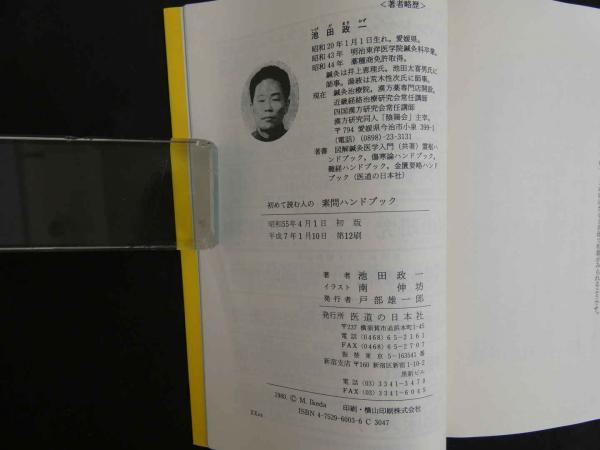 <著者略歴>
いけ だ まさ かず
池田政一
昭和20年1月1日生れ。愛媛県。
昭和43年 明治東洋医学院鍼灸科卒業。
昭和44年 薬種商免許取得。
鍼灸は井上恵理氏、池田太喜男氏に
師事。湯液は荒木性次氏に師事。
現在 鍼灸治療院、漢方薬専門店開設。
近畿経絡治療研究会常任講師
四国漢方研究会常任講師
漢方研究同人「陰陽会」主宰。
〒794 愛媛県今治市小泉 399-1
(電話) (0898)-23-3131
著書 図解鍼灸医学入門(共著)霊枢ハ
ンドブック、傷寒論ハンドブック、
難経ハンドブック、金匱要略ハンド
ブック(医道の日本社)
初めて読む人の 素問ハンドブック
昭和55年4月1日 初 版
平成7年1月10日 第12刷
著 者 池田政一
イラスト 南 伸坊
発行者 戸部雄一郎
発行所 医道の日本社
〒237 横須賀市追浜本町1-45
電話 (0468) 65-2161
FAX (0468) 65-2707
振替 東京 5-163541番
新宿支店 〒160 新宿区新宿1-10-2
電話 (03) 3341-3470
FAX (03) 3341-6045
1980, © M. Ikeda 印刷・横山印刷株式会社
ISBN 4-7529-6003-6 C 3047